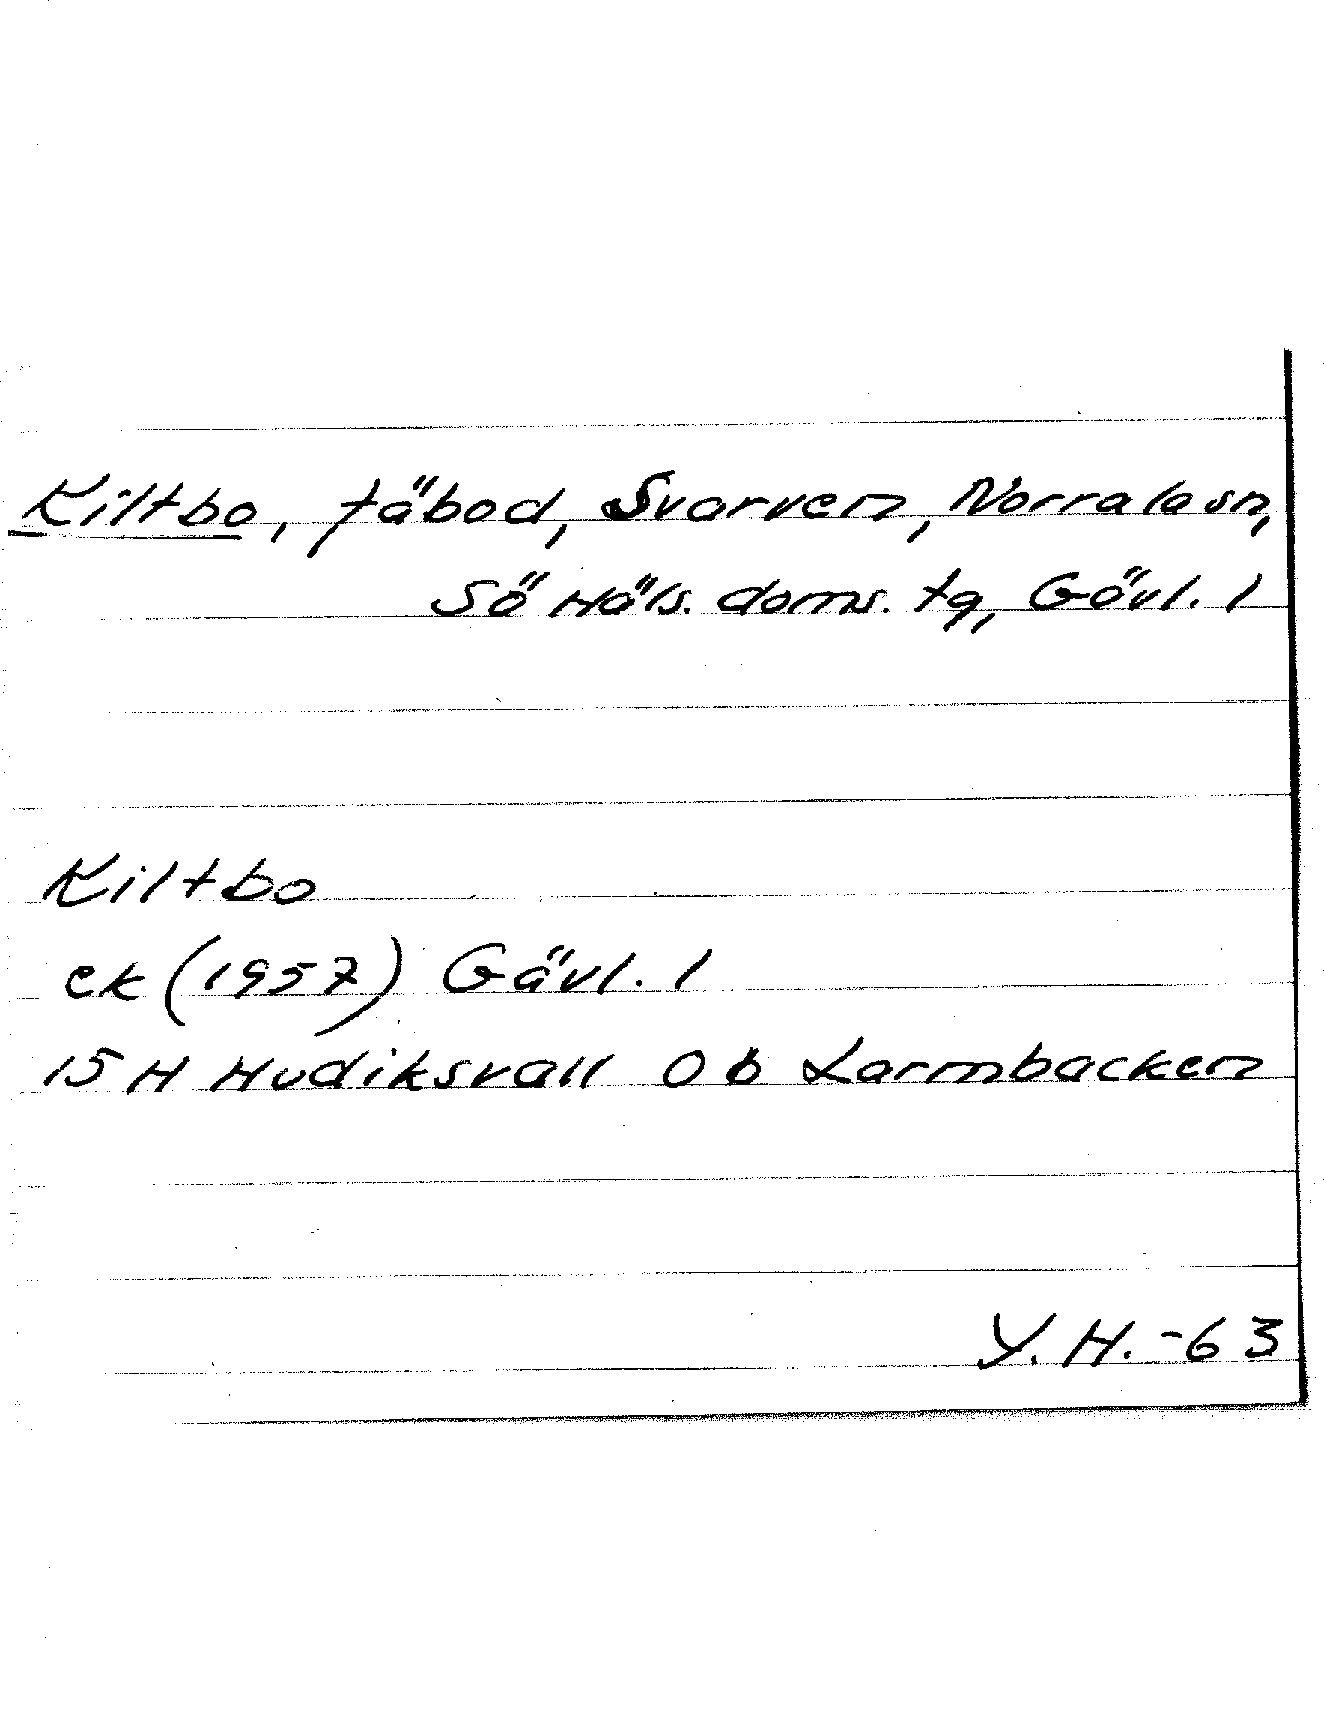 Kiltbo, fäbod, Svarven, Norrala sn,
Sö Häls. doms. tg, Gävl. l
Kiltbo
ek (1957) Gävl. l
15 H Hudiksvall 0 b Larmbacken
Y. H. -63